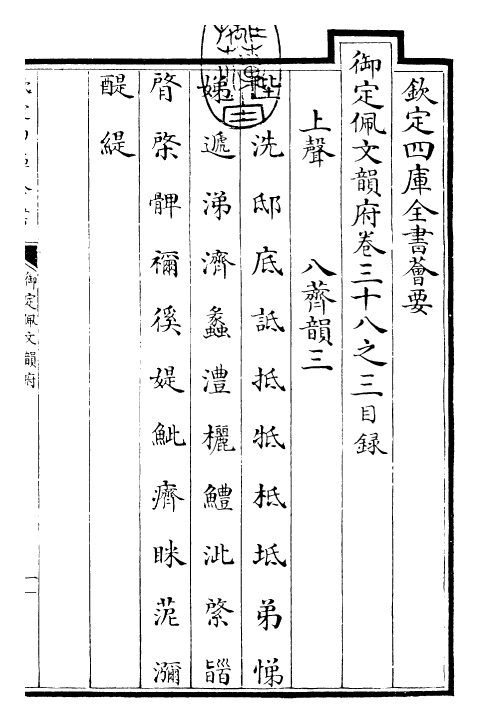 欽定四庫全書薈要
御定佩文韻府卷三十八之三目録
上聲　八薺韻三
陛洗邸底詆抵牴柢坻弟悌
娣遞涕濟蠡澧欐鱧泚棨𦣱
膂棨髀禰徯媞鮆癠眯苨瀰
醍緹
御定佩文韻府
一